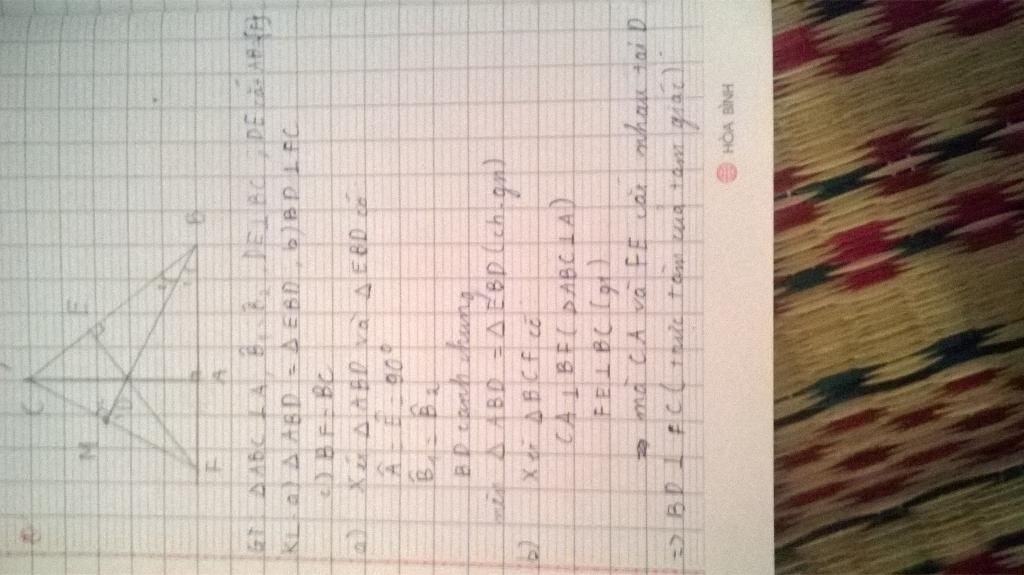 C
M
E
D
F
A
B
GT ΔABC ⊥ A, B̂₁ = B̂₂, DE ⊥ BC, DE cắt AB = {F}
KL a) ΔABD = ΔEBD, b) BD ⊥ FC
c) BF = BC
a) Xét ΔABD và ΔEBD có
Â = Ê = 90°
B̂₁ = B̂₂
BD cạnh chung
nên ΔABD = ΔEBD (ch-gn)
b) Xét ΔBCF có
CA ⊥ BF (ΔABC ⊥ A)
FE ⊥ BC (gt)
⇒ mà CA và FE cắt nhau tại D
⇒ BD ⊥ FC (trực tâm của tam giác)
HÒA BÌNH